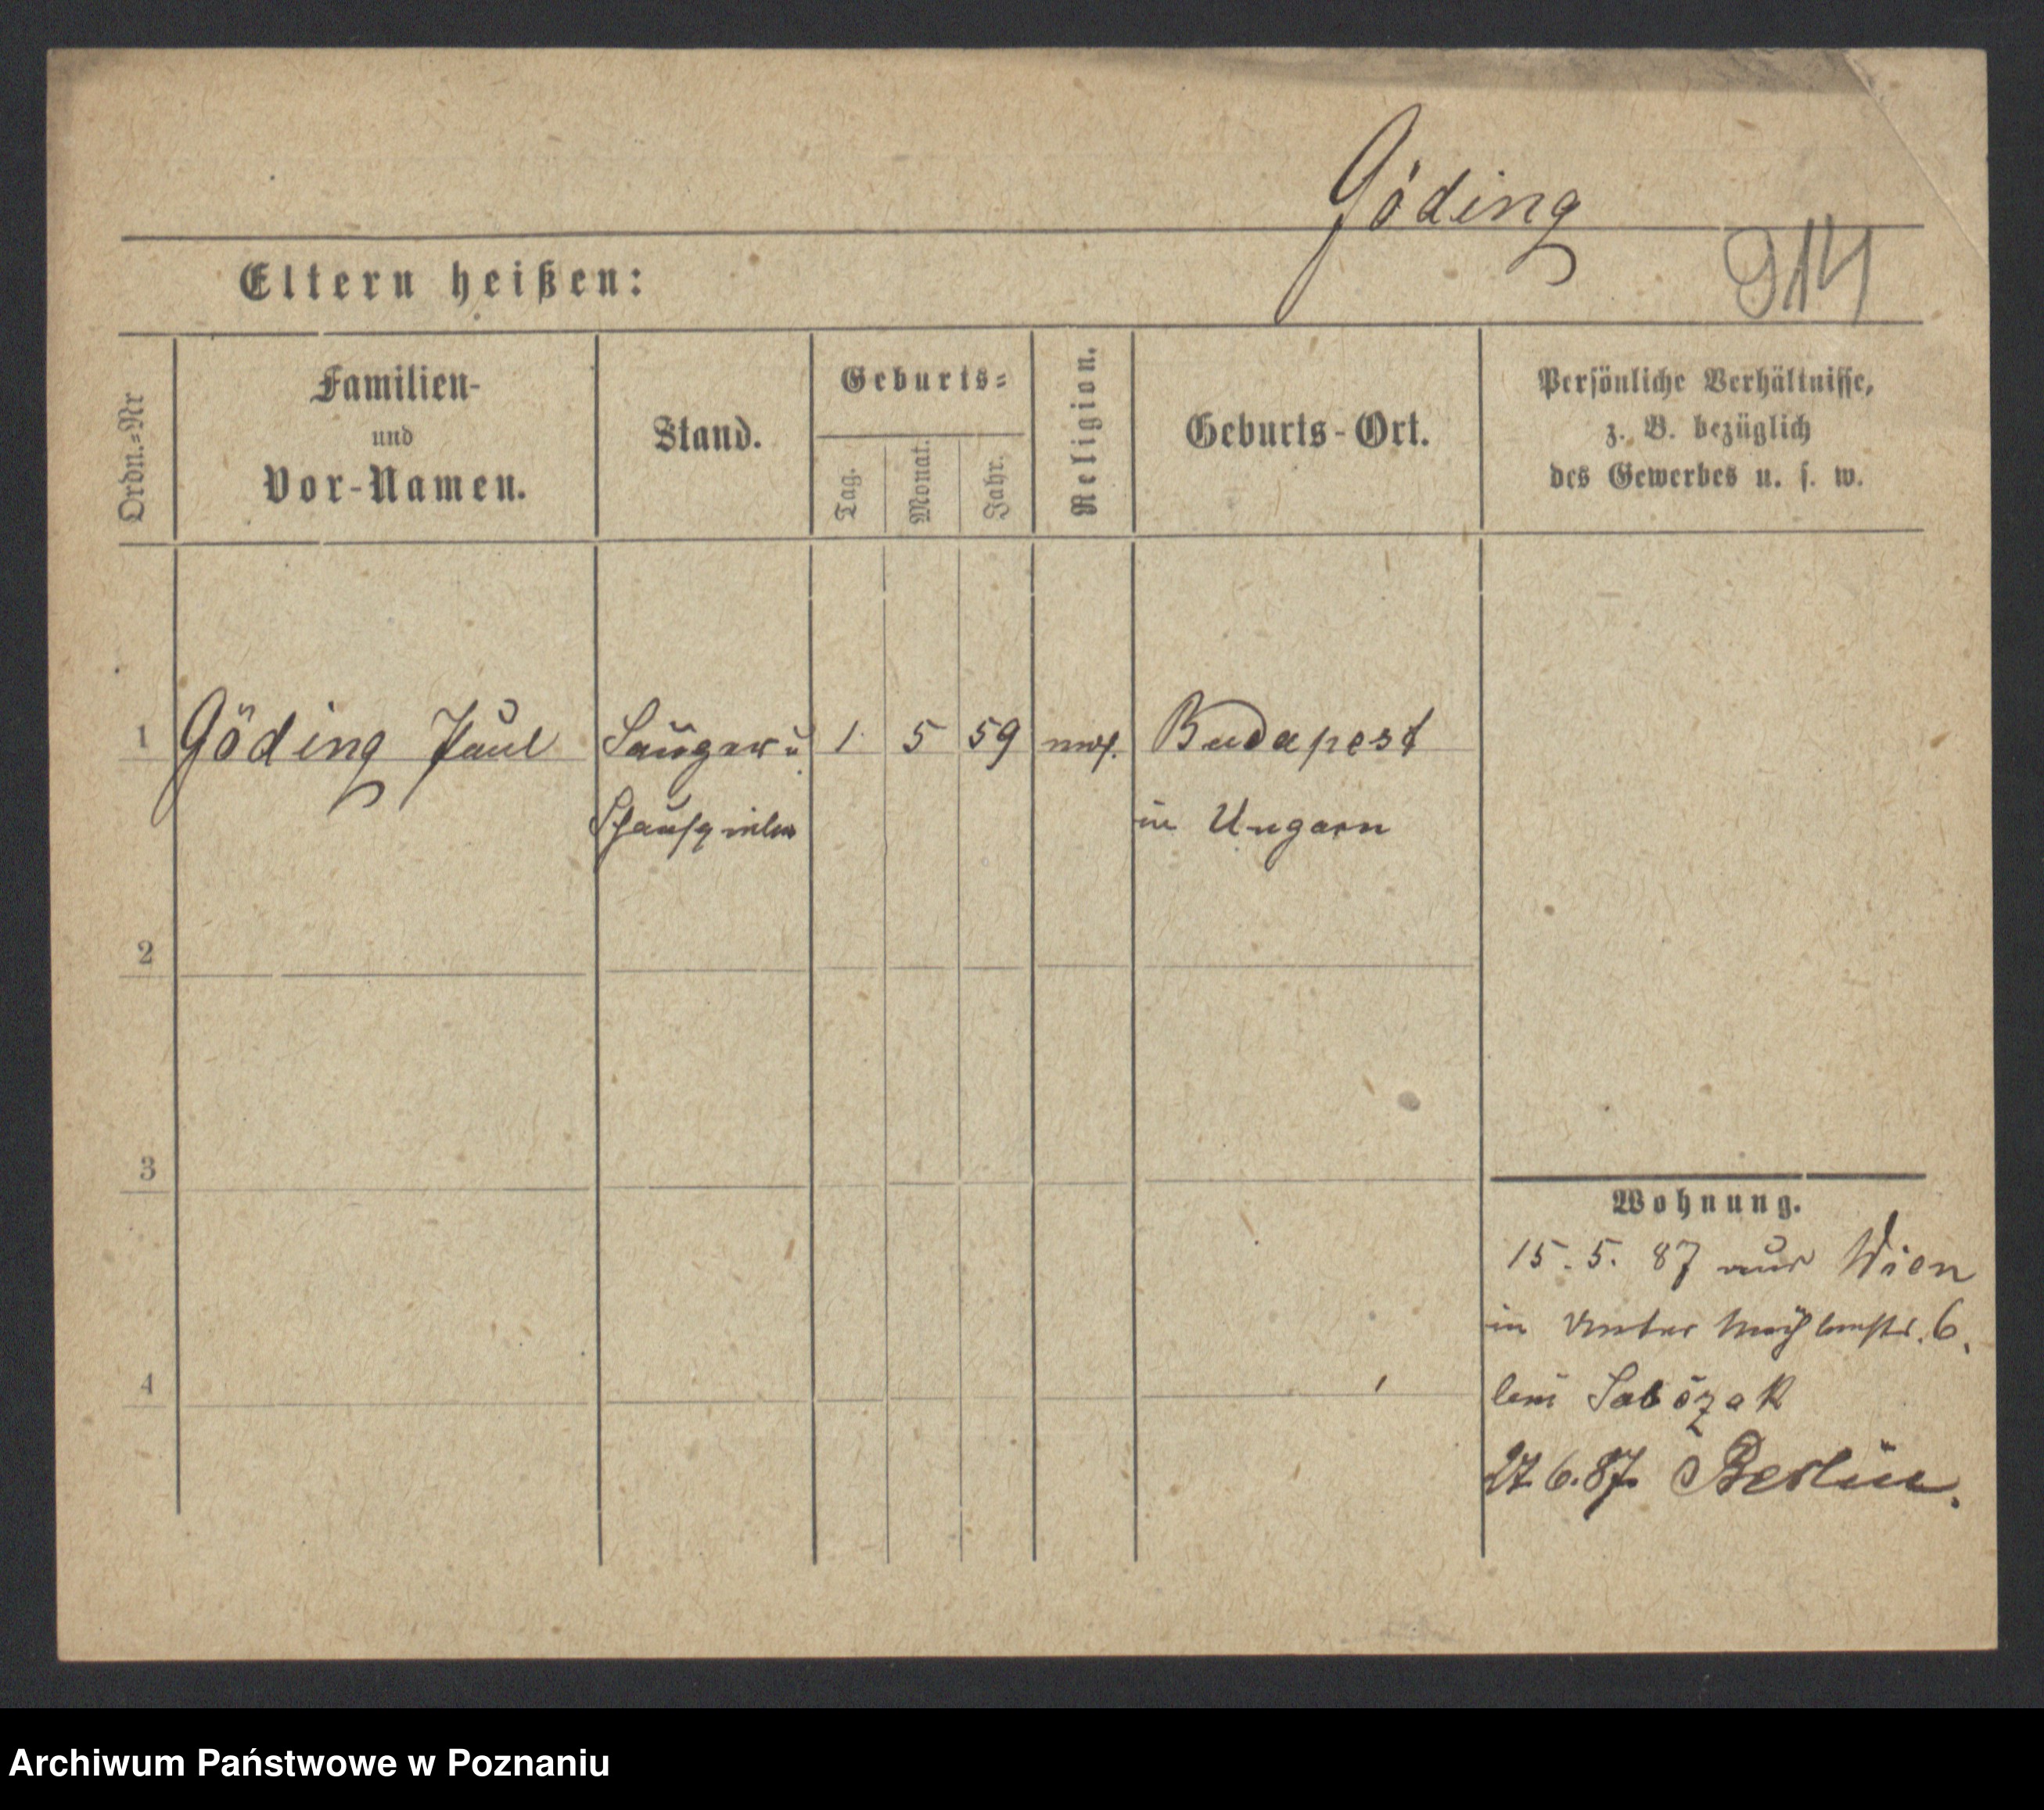 Göding
914
Eltern heißen:
Ordn.=Nr
Familien-
und
Vor-Namen.
Stand.
Geburts=
Tag.
Monat.
Jahr.
Religion.
Geburts-Ort.
Persönliche Verhältnisse,
z. B. bezüglich
des Gewerbes u. s. w.
1 Göding Paul Sänger u 1 5 59 Budapest
Schauspieler in Ungarn
2
3
4
Wohnung.
15. 5. 87 aus Wien
in Unter Mühlenstr. 6.
bei
27. 6. 87. Berlin.
Archiwum Państwowe w Poznaniu